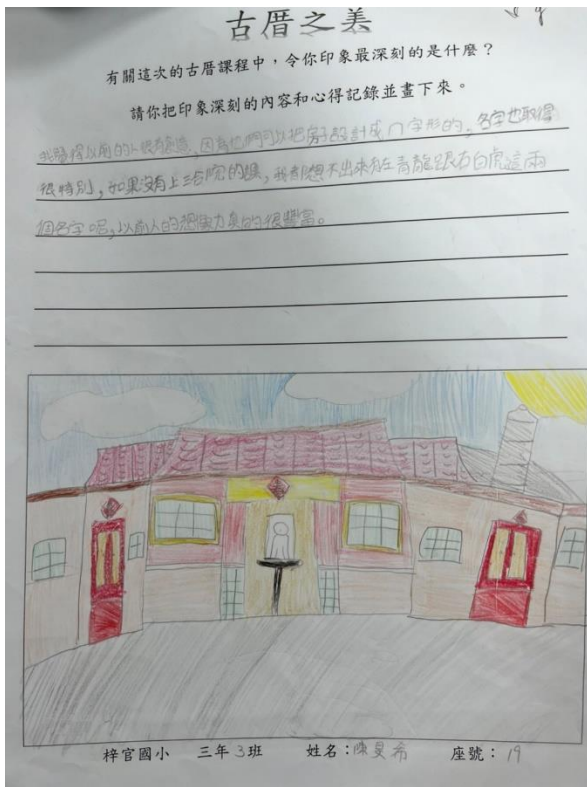 古厝之美
有關這次的古厝課程中，令你印象最深刻的是什麼？
請你把印象深刻的內容和心得記錄並畫下來。
我覺得以前的人很有創意，因為他們可以把房子設計成ㄇ字形的，名字也取得
很特別，如果沒有上三合院的課，我都想不出來左青龍跟右白虎這兩
個名字呢，以前人的想像力真的很豐富。
梓官國小 三年3班 姓名：陳昊希 座號：19